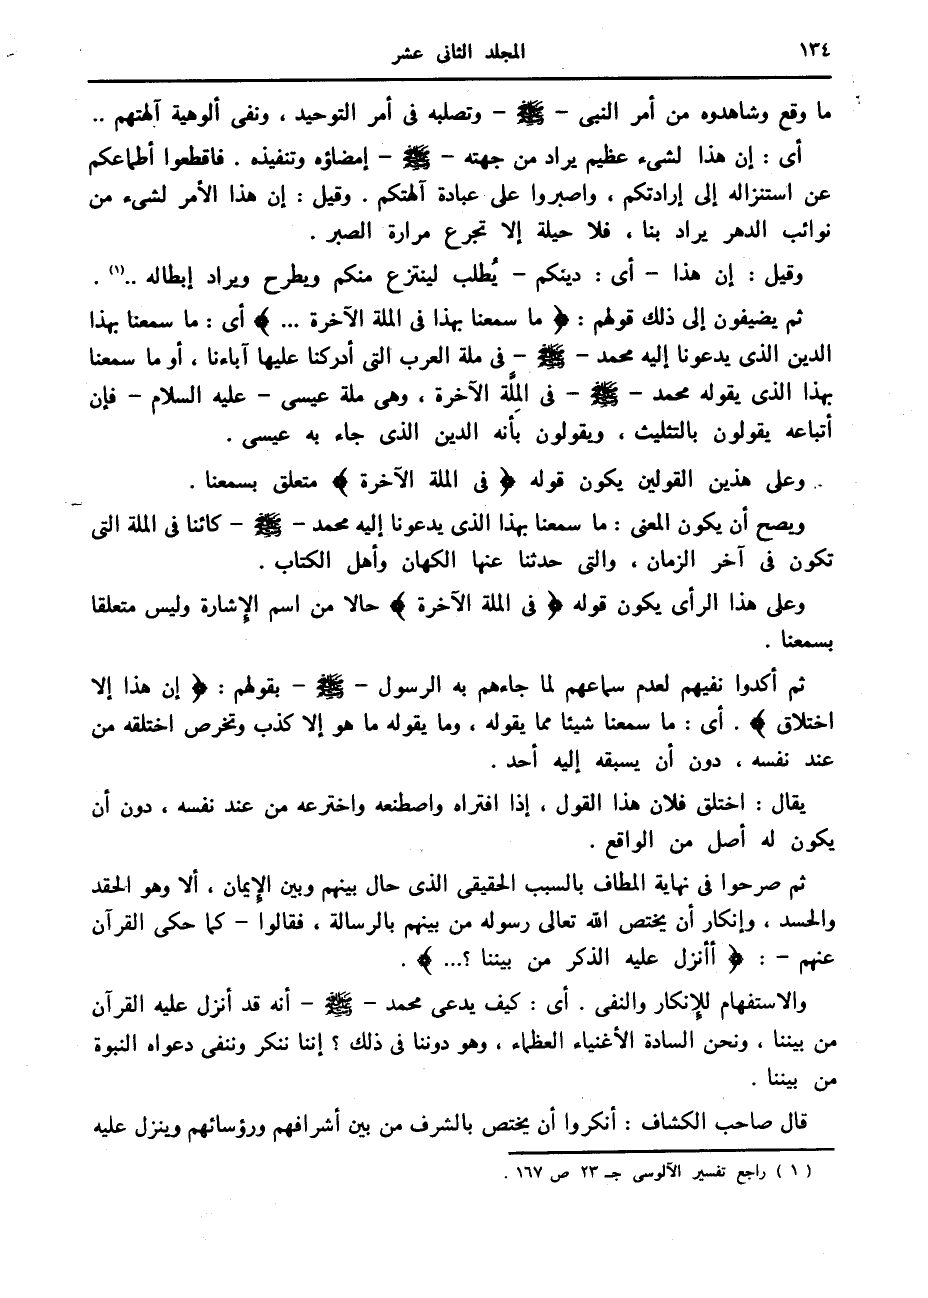 ١٣٤ المجلد الثانى عشر
ما وقع وشاهدوه من أمر النبى – ﷺ – وتصلبه فى أمر التوحيد ، ونفى ألوهية آلهتهم ..
أى : إن هذا لشىء عظيم يراد من جهته – ﷺ – إمضاؤه وتنفيذه . فاقطعوا أطماعكم
عن استنزاله إلى إرادتكم ، واصبروا على عبادة آلهتكم . وقيل : إن هذا الأمر لشىء من
نوائب الدهر يراد بنا ، فلا حيلة إلا تجرع مرارة الصبر .
وقيل : إن هذا – أى : دينكم – يُطلب لينتزع منكم ويطرح ويراد إبطاله ..(١) .
ثم يضيفون إلى ذلك قولهم : ﴿ ما سمعنا بهذا فى الملة الآخرة ... ﴾ أى : ما سمعنا بهذا
الدين الذى يدعونا إليه محمد – ﷺ – فى ملة العرب التى أدركنا عليها آباءنا ، أو ما سمعنا
بهذا الذى يقوله محمد – ﷺ – فى المِلَّة الآخرة ، وهى ملة عيسى – عليه السلام – فإن
أتباعه يقولون بالتثليث ، ويقولون بأنه الدين الذى جاء به عيسى .
وعلى هذين القولين يكون قوله ﴿ فى الملة الآخرة ﴾ متعلق بسمعنا .
ويصح أن يكون المعنى : ما سمعنا بهذا الذى يدعونا إليه محمد – ﷺ – كائنا فى الملة التى
تكون فى آخر الزمان ، والتى حدثنا عنها الكهان وأهل الكتاب .
وعلى هذا الرأى يكون قوله ﴿ فى الملة الآخرة ﴾ حالا من اسم الإشارة وليس متعلقا
بسمعنا .
ثم أكدوا نفيهم لعدم سماعهم لما جاءهم به الرسول – ﷺ – بقولهم : ﴿ إن هذا إلا
اختلاق ﴾ . أى : ما سمعنا شيئا مما يقوله ، وما يقوله ما هو إلا كذب وتخرص اختلقه من
عند نفسه ، دون أن يسبقه إليه أحد .
يقال : اختلق فلان هذا القول ، إذا افتراه واصطنعه واخترعه من عند نفسه ، دون أن
يكون له أصل من الواقع .
ثم صرحوا فى نهاية المطاف بالسبب الحقيقى الذى حال بينهم وبين الإيمان ، ألا وهو الحقد
والحسد ، وإنكار أن يختص الله تعالى رسوله من بينهم بالرسالة ، فقالوا – كما حكى القرآن
عنهم – : ﴿ أأنزل عليه الذكر من بيننا ؟... ﴾ .
والاستفهام للإنكار والنفى . أى : كيف يدعى محمد – ﷺ – أنه قد أنزل عليه القرآن
من بيننا ، ونحن السادة الأغنياء العظماء ، وهو دوننا فى ذلك ؟ إننا ننكر وننفى دعواه النبوة
من بيننا .
قال صاحب الكشاف : أنكروا أن يختص بالشرف من بين أشرافهم ورؤسائهم وينزل عليه
( ١ ) راجع تفسير الآلوسى جـ ٢٣ ص ١٦٧ .